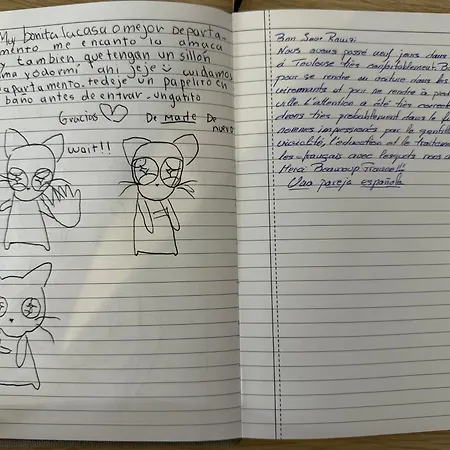 Muy bonita la casa o mejor departa-
mento me encanto la amaca
y tambien que tengan un sillón
ama yo dormi ahi jeje cuidamos
apartamento. te deje un papelito en
baño antes de entrar. un gatito
Gracias De Marte De
nuevo
wait!!
Bon Soir
Nous avons passé neuf jours dans
à Toulouse très confortablement.
pour se rendre en voiture dans les
environnants et pour se rendre à
ville. L'attention a été très correcte
drons très probablement dans le
sommes impressionnés par la gentill
l'éducation et le traitement
les français avec lesquels nous
Merci Beaucoup France!!
Una pareja española